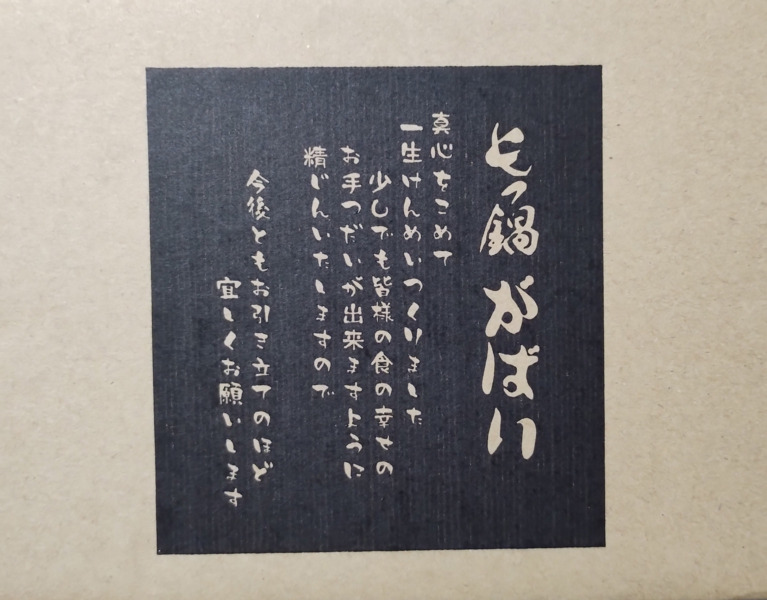 もつ鍋 がばい
真心をこめて
一生けんめいつくりました
少しでも皆様の食の幸せの
お手つだいが出来ますように
精じんいたしますので
今後ともお引き立てのほど
宜しくお願いします